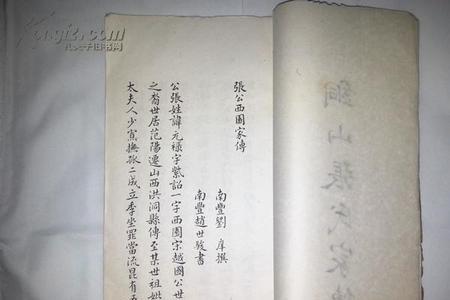 銅山張氏家
張公西園家傳
南豐劉庠撰
南豐趙世駿書
公張姓諱元祿字紫詔一字西園宋越國公世
之裔世居范陽遷山西洪洞縣傳至某世祖
太夫人少寡撫孤二成立季坐罪當流昆有
Kongfz.com
孔夫子旧书网